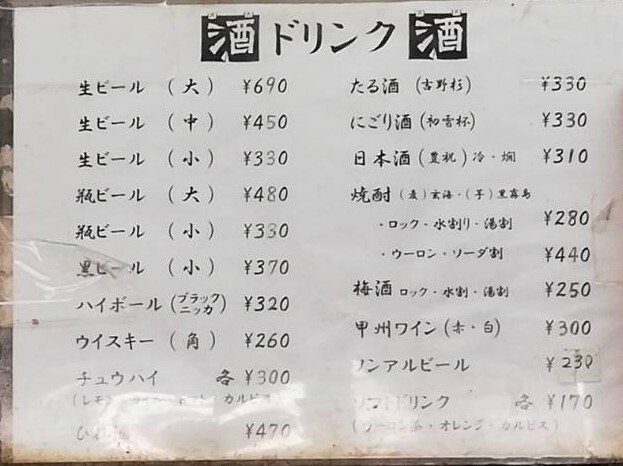 酒 ドリンク 酒
生ビール (大) ¥690
生ビール (中) ¥450
生ビール (小) ¥330
瓶ビール (大) ¥480
瓶ビール (小) ¥330
黒ビール (小) ¥370
ハイボール (ブラックニッカ) ¥320
ウイスキー (角) ¥260
チュウハイ 各 ¥300
(レモン・ ・カルピス)
¥470
たる酒 (吉野杉) ¥330
にごり酒 (初雪杯) ¥330
日本酒 (豊祝) 冷・燗 ¥310
焼酎 (麦) 玄海・(芋) 黒霧島
・ロック・水割り・湯割 ¥280
・ウーロン・ソーダ割 ¥440
梅酒 ロック・水割・湯割 ¥250
甲州ワイン (赤・白) ¥300
ノンアルビール ¥230
ソフトドリンク 各 ¥170
(ウーロン茶・オレンジ・カルピス)